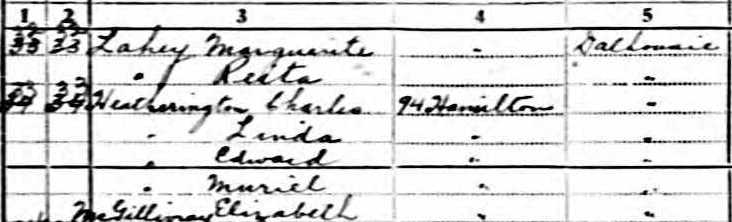 1 2 3 4 5
33 33 Lahey Marguerite " Dalhousie
" Resta "
34 34 Heatherington Charles 94 Hamilton "
" Linda " "
" Edward " "
" Muriel " "
McGillivray Elizabeth " "